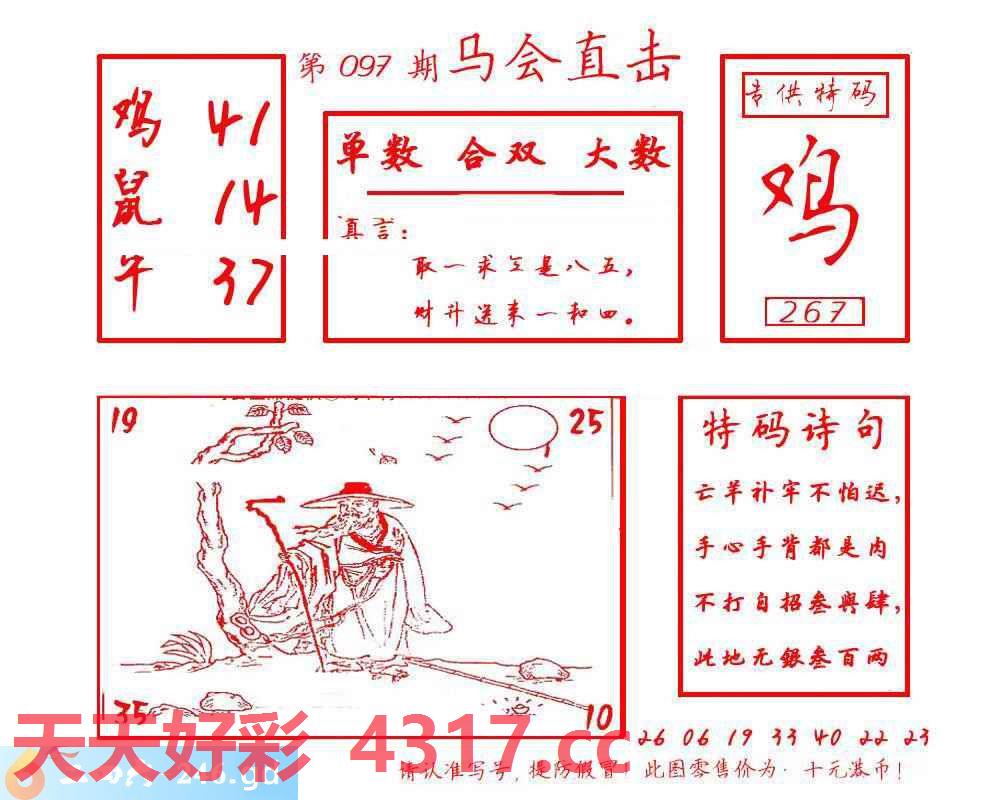 第 097 期 马会直击
鸡 41
鼠 14
牛 37
单数 合双 大数
真言:
取一求三是八五,
财升送来一和四。
专供特码
鸡
267
19
25
35
10
特码诗句
亡羊补牢不怕迟,
手心手背都是肉
不打自招叁與肆,
此地无銀叁百两
天天好彩 4317.cc
246.gd
26 06 19 33 40 22 23
请认准写号, 提防假冒! 此图零售价为· 十元港币!